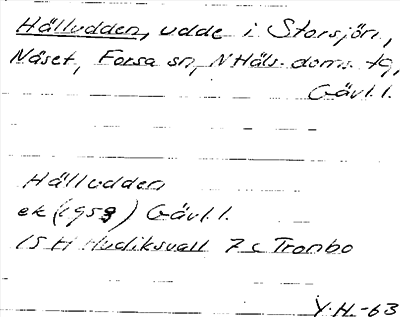 Hälludden, udde i Storsjön,
Näset, Forsa sn, N Häls. doms. tg,
Gävl. l.
Hälludden
ek (1953) Gävl. l.
15 H Hudiksvall 7 c Trombo
Y. H. -63